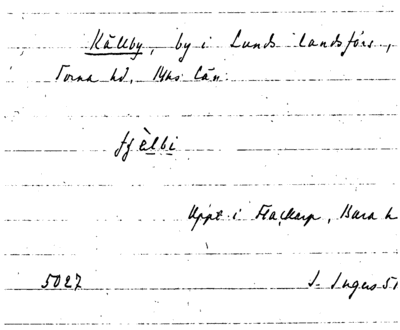 Källby, by i Lunds landsförs,
Torna hd, Mhs län.
Uppt i Flackarp, Bara h
5027 J. Ingers 51